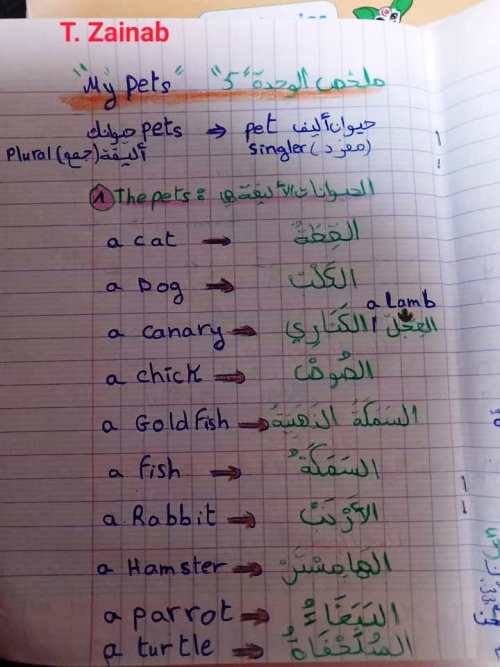 T. Zainab
"My pets" ملخص الوحدة "5"
حيوانات pets → pet حيوان أليف
Plural (جمع) أليفة singler (مفرد)
1 The pets : الحيوانات الأليفة
a cat → القِطَّةُ
a Dog → الكَلْبُ
a Lamb
a canary → الكَنَارِي / العِجْلُ
a chick → الصُوصُ
a Goldfish → السَمَكَةُ الذَهَبِيَةُ
a fish → السَمَكَةُ
a Rabbit → الأَرْنَبُ
a Hamster → الهَامِسْتَرْ
a parrot → البَبَغَاءُ
a turtle → السُلَحْفَاةُ